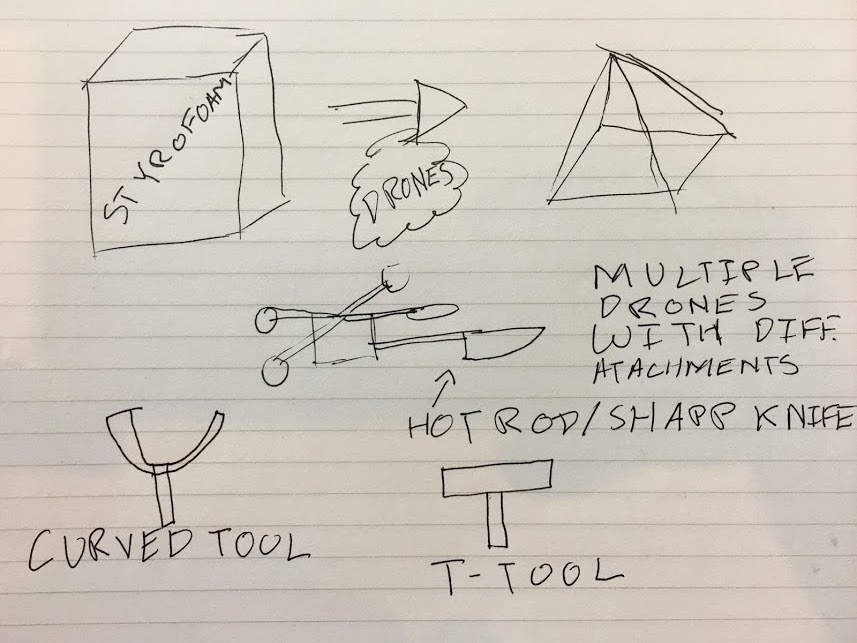 STYROFOAM
DRONES
MULTIPLE
DRONES
WITH DIFF.
ATACHMENTS
HOT ROD/SHARP KNIFE
CURVED TOOL
T-TOOL